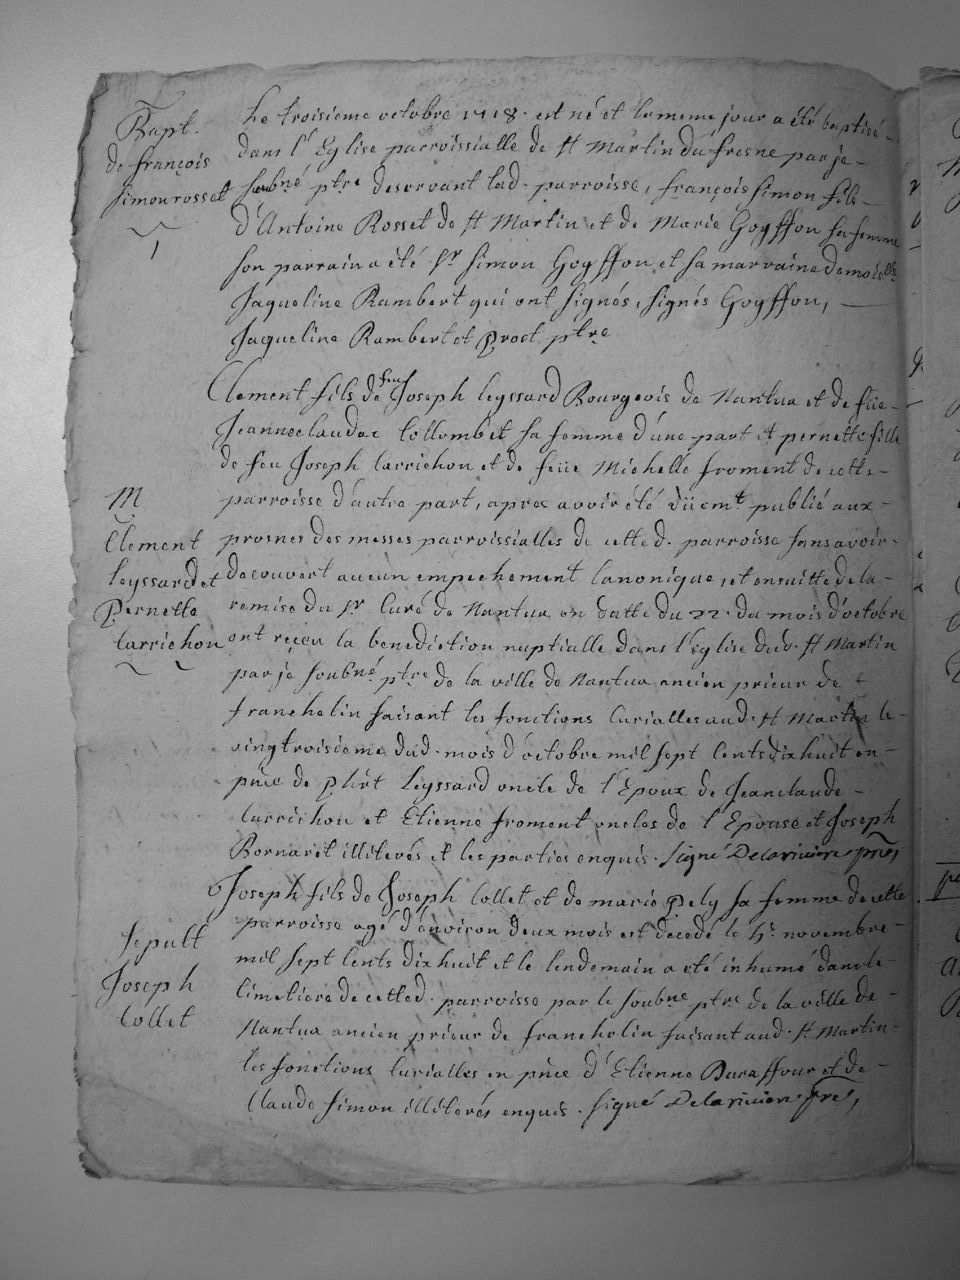 Bapt.
de françois
simon rosset
1
Le troisieme octobre 1718. est né et le meme jour a été baptisé
dans l'Eglise parroissialle de St Martin du fresne par je
soubné ptre deservant lad. parroisse, françois simon fils
d'Antoine Rosset de St Martin et de Marie Goyffon sa femme
son parrain a été Sr simon Goyffon et sa marraine demoislle
Jaqueline Rambert qui ont signés, signés Goyffon,
Jaqueline Rambert et Prost ptre
M
Clement
Leyssard et
Pernette
Carrichon
Clement fils de feu Joseph Leyssard Bourgeois de Nantua et de füe
Jeanneclaudae Collombet sa femme d'une part et pernette fille
de feu Joseph Carrichon et de feüe Michelle froment de cette
parroisse d'autre part, aprex avoir été düemt publié aux
prosnes des messes parroissialles de cetted. parroisse sans avoir
decouvert aucun empechement Canonique, et ensuitte de la
remise du Sr Curé de Nantua en datte du 22. du mois d'octobre
ont reçeu la benediction nuptialle dans l'Eglise dud. St Martin
par je soubné ptre de la ville de Nantua ancien prieur de
franchelin faisant les fonctions Curialles aud. St Martin le
vingtroisieme dud. mois d'octobre mil sept Cents dix huit en
pñce de Phirt Leyssard oncle de l'Epoux de Jeanclaude
Carrichon et Etienne froment oncles de l'Epouse et Joseph
Bornaret illiterés et les parties enquis. signé Delariviere
Sepult
Joseph
Collet
Joseph fils de Joseph Collet et de marie Pely sa femme de cette
parroisse agé d'environ deux mois est decedé le 4e. novembre
mil sept Cents dix huit et le lendemain a été inhumé dans le
Cimetiere de cetted. parroisse par le soubné ptre de la ville de
Nantua ancien prieur de franchelin faisant aud. St Martin
les fonctions Curialles en pñce d'Etienne Buraffour et de
Claude simon illiterés enquis. signé Delariviere ptre,